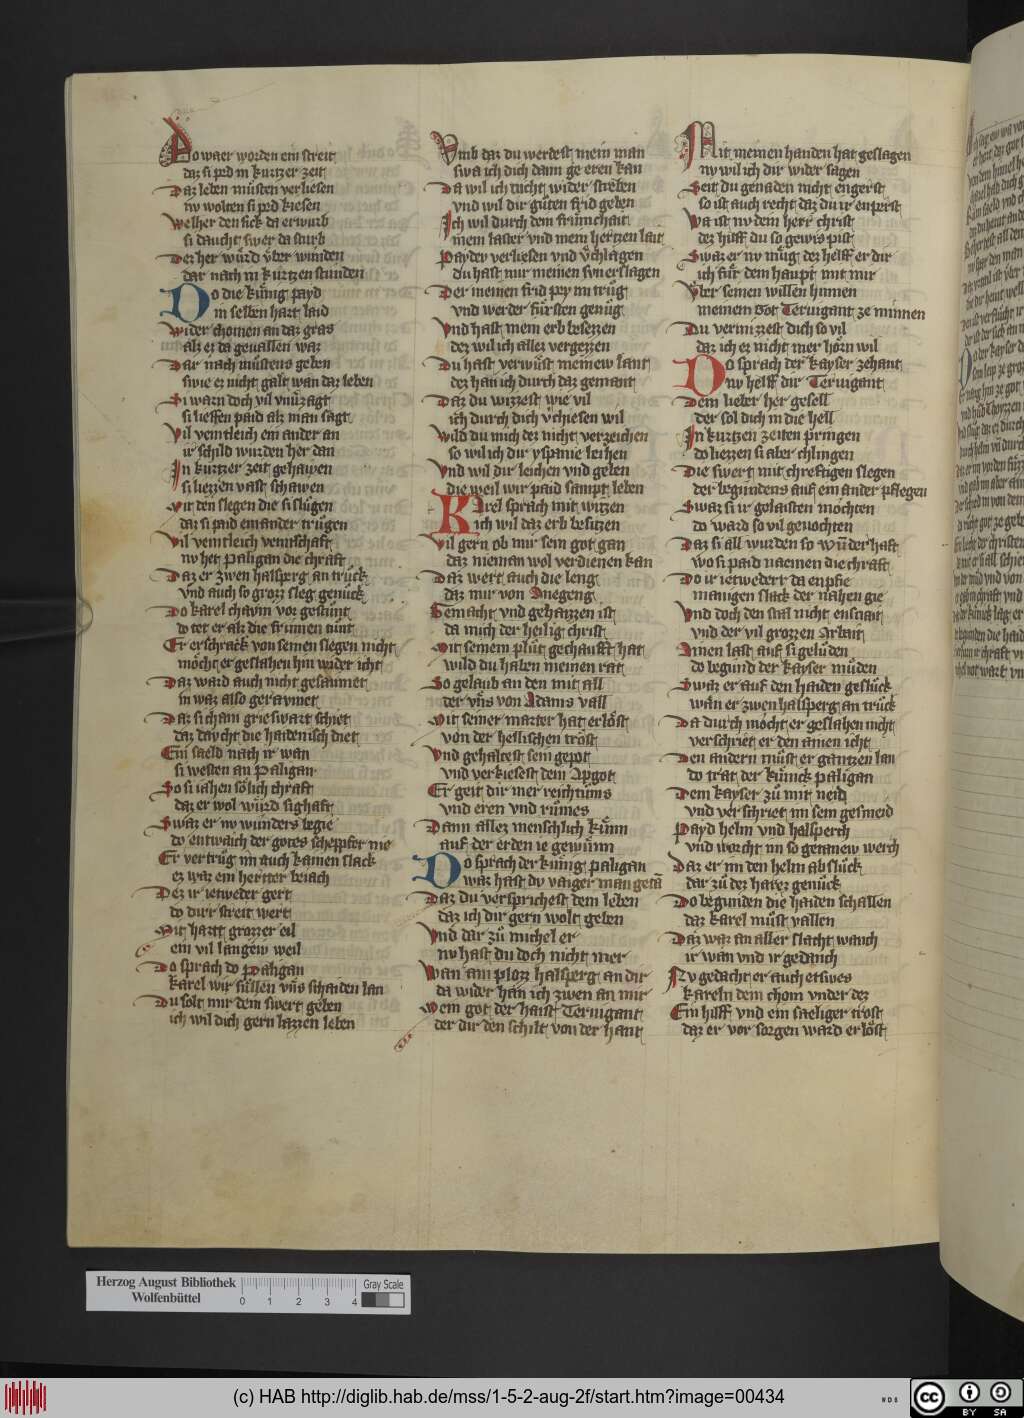 Do waer worden ein streit
daz si ped in kurtzer zeit
Daz leben müsten verliesen
nv wolten si ped kiesen
Welher den sick da erwurb
si daucht swer da sturb
Der her würd vber winden
dar nach in kurtzen stunden
Do die küng payd
in selben hart laid
Wider chomen an daz gras
alz ez da geuallen waz
Dar nach müstens geben
swie ez nicht galt wan daz leben
Si warn doch vil vnuerzagt
si lieffen paid alz man sagt
Vil veintleich ein ander an
ir schild wurden her dan
In kurtzer zeit gehawen
si liezzen vast schawen
Mit den slegen die si slügen
daz si paid ein ander trügen
Vil veintleich veintschaft
nv het paligan die chraft
Daz er zwen halsperg an trück
vnd auch so grozz sleg genück
Do karel chavm vor gestünt
do tet er alz die frumen tünt
Er erschrack von seinen slegen nicht
möcht er geslahen hin wider icht
Daz ward auch nicht gesaumet
in waz also geraumet
Daz si cham grieswart schiet
daz daucht die haidenisch diet
Ein saeld nach ir wan
si westen an Paligan
So si iahen sölich chraft
daz er wol würd sighaft
Swaz er nv wunders begie
do entwaich der gotes scheppfer nie
Er vertrüg im auch kainen slack
ez waz ein hertter beiach
Dez ir ietweder gert
do dirr streit wert
Mit hartt grozzer eil
ein vil langew weil
Do sprach do Paligan
karel wir süllen vns schaiden lan
Du solt mir dein swert geben
ich wil dich gern lazzen leben
Vmb daz du werdest mein man
swa ich dich dann ge eren kan
Da wil ich nicht wider streben
vnd wil dir güten frid geben
Ich wil durch dein frümchait
mein laster vnd mein hertzen lait
Payder verliesen vnd vchlagen
du hast mir meinen svn erslagen
Der meinen frid pey mir trüg
vnd werder fürsten genüg
Vnd hast mein erb besezzen
dez wil ich allez vergezzen
Du hast verwüst meinew lant
dez han ich durch daz gemant
Daz du wizzest wie vil
ich durch dich vchiesen wil
Wild du mich dez nicht verzeichen
so wil ich dir yspanie leihen
Vnd wil dir leichen vnd geben
die weil wir paid sampt leben
Karel sprach mit witzen
ich wil daz erb besitzen
Vil gern ob mir sein got gan
daz nieman wol verdienen kan
Daz wert auch die leng
daz mir von Anegeng
Gemacht vnd gehaizzen ist
da mich der heilig christ
Mit seinem plüt gechaufft hat
wild du haben meinen rat
So gelaub an den mit all
der vns von Adams vall
Mit seiner marter hat erlöst
von der hellischen tröst
Vnd gehaltest sein gepot
vnd verkiesest dein Apgot
Er geit dir mer reichtums
vnd eren vnd rümes
Dann allez menschlich künn
auf der erden ie gewunn
Do sprach der küng paligan
waz hast dv vaiger man getan
Daz du versprichest dein leben
daz ich dir gern wolt geben
Vnd dar zü michel er
nv hast du doch nicht mer
Wan ain plozz halsperg an dir
da wider han ich zwen an mir
Mein got der haist Teruigant
der dir den schilt von der hant
Mit meinen handen hat geslagen
nv wil ich dir wider sagen
Seit du genaden nicht engerst
so ist auch recht daz du ir enperst
Wa ist nv dein herr christ
dez hilff du so gewis pist
Swaz er nv müg dez helff er dir
ich für dein haupt mit mir
Vber seinen willen hinnen
meinem Got Teruigant ze minnen
Du vermizzest dich so vil
daz ich ez nicht mer hörn wil
Do sprach der kayser zehant
nv helff dir Teruigant
Dein lieber her gesell
der sol dich in die hell
In kurtzen zeiten pringen
do liezzen si aber chlingen
Die swert mit chreftigen slegen
der begundens auf ein ander pflegen
Swaz si ir gelaisten mochten
do ward so vil geuochten
Daz si all wurden so wunderhaft
wo si paid naemen die chraft
Do ir ietwedert da enpfie
manigen slack der nahen gie
Vnd doch den stal nicht ensnait
vnd der vil grozzen Arbait
Ainen last auf si gelüden
do begund der kayser müden
Swaz er auf den haiden geslück
wan er zwen halsperg an trück
Da durch mocht er geslahen nicht
verschriet er den ainen icht
Den andern müst er gantzen lan
do trat der künick paligan
Dem kayser zü mit neid
vnd verschriet im sein gesmeid
Payd helm vnd halsperch
vnd worcht im so getanew werch
Daz er im den helm ab slück
dar zü dez harez genück
Do begunden die haiden schallen
daz karel müst vallen
Daz waz an aller slacht wanch
ir wan vnd ir gedanch
Nv gedacht er auch etswes
kareln dem chom vnder dez
Ein hilff vnd ein saeliger trost
daz er vor sorgen ward erlöst
Herzog August Bibliothek
Wolfenbüttel
0 1 2 3 4
Gray Scale
(c) HAB http://diglib.hab.de/mss/1-5-2-aug-2f/start.htm?image=00434
CC BY SA